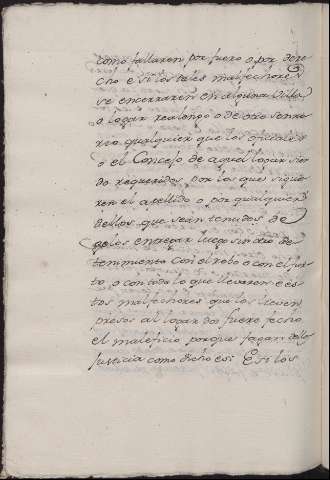 como fallaren por fuero o por dere
cho e si los tales malfechores
se encerraren en alguna Villa
o logar realengo o de otro senno
rio qualquier que los oficiales
o el Concejo de aquel logar sien
do requeridos por los que siguie
ren el apellido o por qualquier
dellos que sean tenudos de
gelos entregar luego sin otro de
tenimiento con el robo e con el fur
to o con todo lo que llevaron e es
tos malfechores que los lleven
presos al logar do fuere fecho
el maleficio porque fagan dellos
Justicia como dicho es: E si los